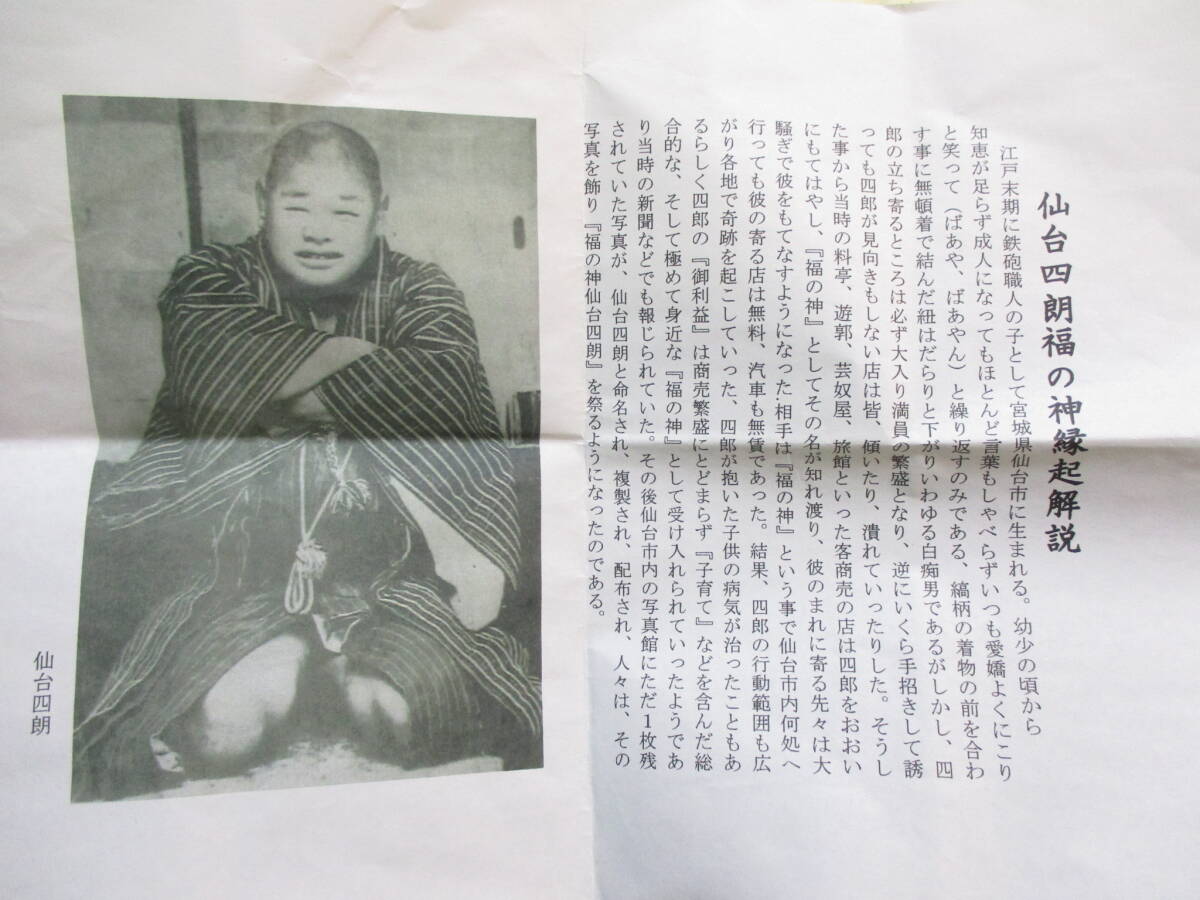 仙台四朗福の神縁起解説
江戸末期に鉄砲職人の子として宮城県仙台市に生まれる。幼少の頃から
知恵が足らず成人になってもほとんど言葉もしゃべらずいつも愛嬌よくにこり
と笑って（ばあや、ばあやん）と繰り返すのみである、縞柄の着物の前を合わ
す事に無頓着で結んだ紐はだらりと下がりいわゆる白痴男であるがしかし、四
郎の立ち寄るところは必ず大入り満員の繁盛となり、逆にいくら手招きして誘
っても四郎が見向きもしない店は皆、傾いたり、潰れていったりした。そうし
た事から当時の料亭、遊郭、芸奴屋、旅館といった客商売の店は四郎をおおい
にもてはやし、『福の神』としてその名が知れ渡り、彼のまれに寄る先々は大
騒ぎで彼をもてなすようになった.相手は『福の神』という事で仙台市内何処へ
行っても彼の寄る店は無料、汽車も無賃であった。結果、四郎の行動範囲も広
がり各地で奇跡を起こしていった、四郎が抱いた子供の病気が治ったこともあ
るらしく四郎の『御利益』は商売繁盛にとどまらず『子育て』などを含んだ総
合的な、そして極めて身近な『福の神』として受け入れられていったようであ
り当時の新聞などでも報じられていた。その後仙台市内の写真館にただ１枚残
されていた写真が、仙台四朗と命名され、複製され、配布され、人々は、その
写真を飾り『福の神仙台四朗』を祭るようになったのである。
仙台四朗